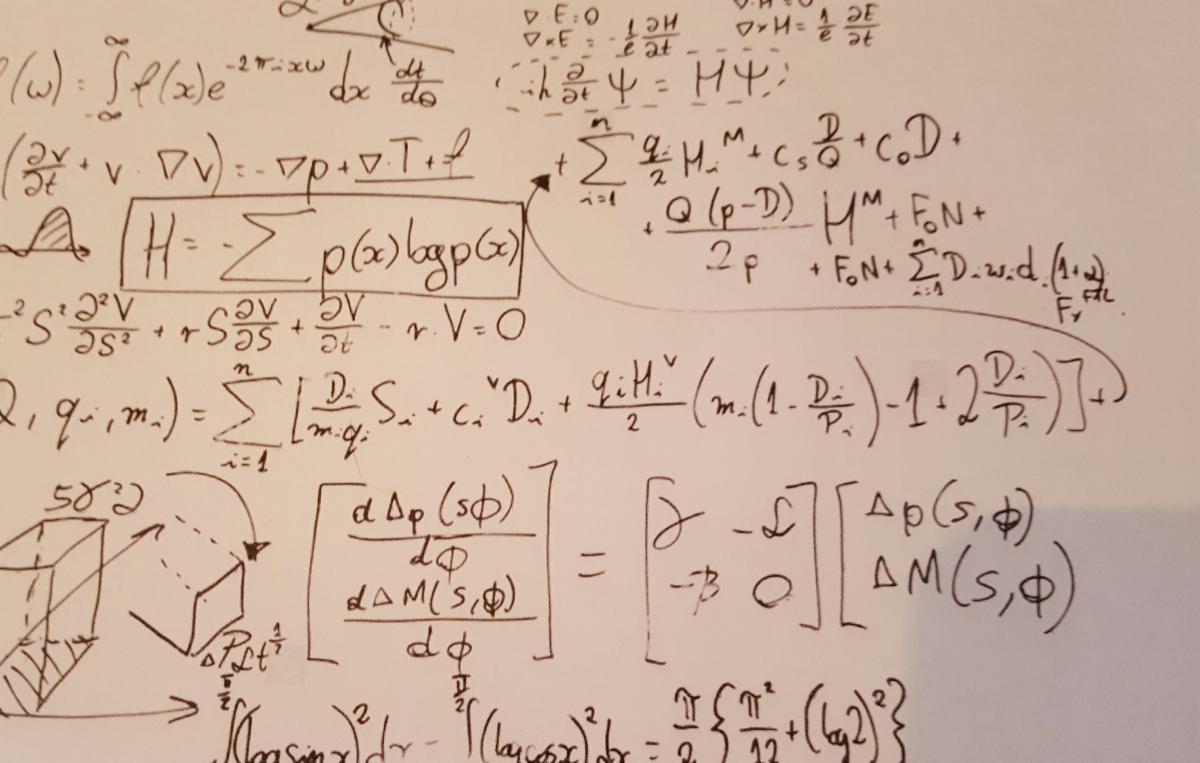 ∇·E=0
∇×E = -1/c ∂H/∂t ∇×H = 1/c ∂E/∂t
(ω) = ∫_{-∞}^{∞} f(x)e^{-2πixω} dx dt/dθ
iħ ∂/∂t Ψ = HΨ
(∂v/∂t + v · ∇v) = -∇p + ∇·T + f
+ ∑_{i=1}^{n} q_i/2 H_i^M + c_s D/Q + c_o D +
+ Q(p-D)/2p H^M + F_o N +
+ F_o N + ∑_{i=1}^{n} D_i w_i d
H = -∑ p(x) log p(x)
²S² ∂²V/∂S² + r S ∂V/∂S + ∂V/∂t - r·V = 0
, q_i, m_i) = ∑_{i=1}^{n} [D_i/m_i q_i S_i + c_i^v D_i + q_i H_i^v/2 (m_i(1 - D_i/P_i) - 1 + 2 D_i/P_i)] +
[dΔp(sϕ)/dϕ dΔM(s,ϕ)/dϕ] = [γ -£ -β 0] [Δp(s,ϕ) ΔM(s,ϕ)
∫^{π/2} (log sin x)² dx = ∫^{π/2} (log cos x)² dx = π/2 {π²/12 + (log 2)²}